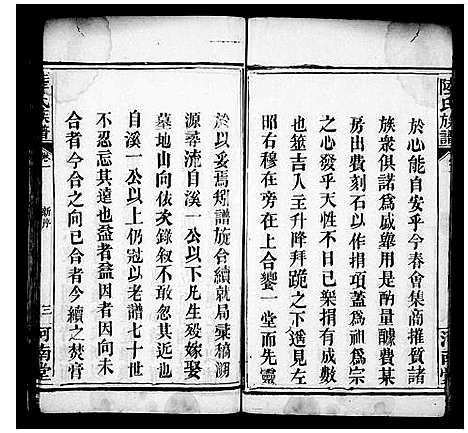 陸氏族譜
於心能自安乎今春會集商推質諸
族衆俱諾爲咸舉用是酌量醵費某
房出費刻石以作捐項蓋爲祖爲宗
之心發乎天性不日已槩捐有成數
也筮吉人主升降拜跪之下遙見左
昭右穆在旁在上合饗一堂而先靈
於以妥焉矧譜旋合續就局藁稿溯
源尋流自溪一公以下凡生殁嫁娶
墓地山向依次錄敘不敢忽其近也
自溪一公以上仍冠以老譜七十世
不忍忘其遠也益者益因者因向未
合者今合之向已合者今續之焚膏
氏族譜
卷一
新序
三
河南堂